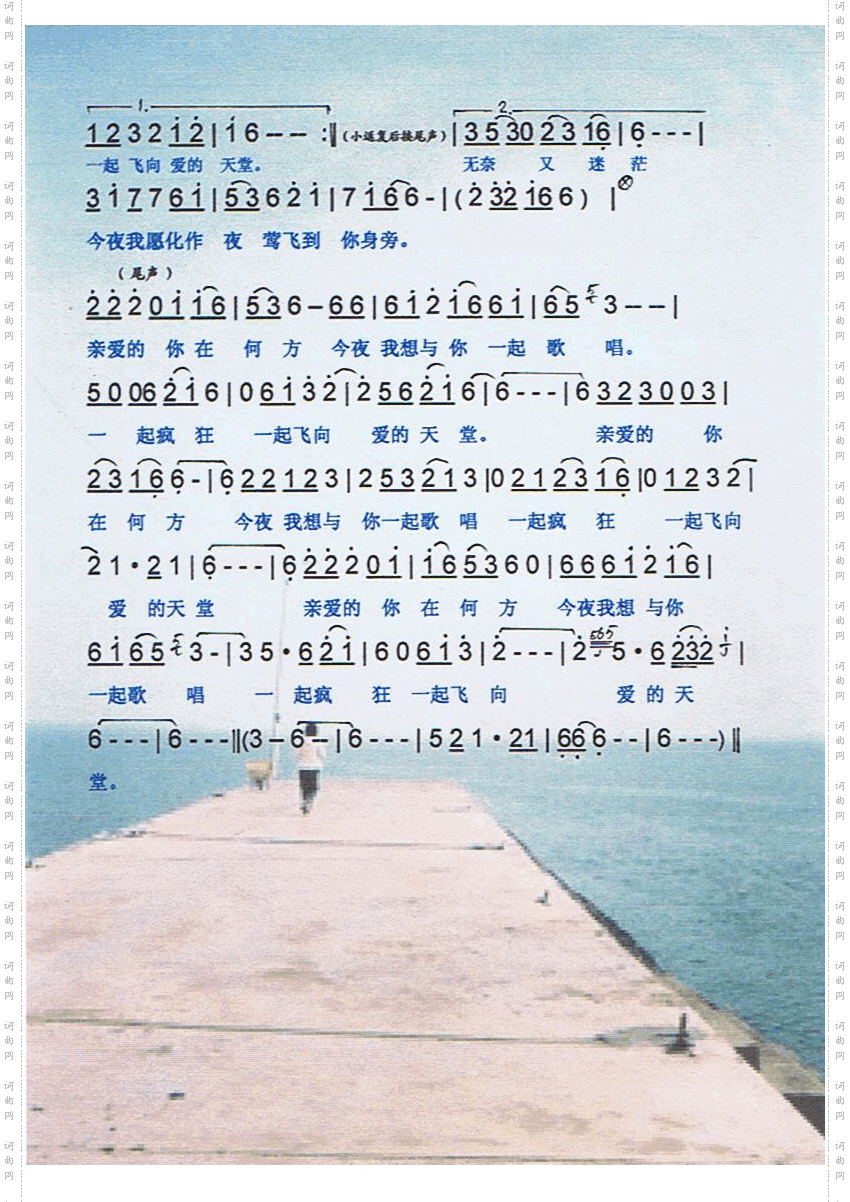 1.
2.
1 2 3 2 1 2 | 1 6 - - :‖ (小返复后接尾声) | 3 5 3 0 2 3 1 6 | 6 - - - |
一起 飞向 爱的 天堂。 无奈 又 迷 茫
3 1 7 7 6 1 | 5 3 6 2 1 | 7 1 6 6 - | ( 2 3 2 1 6 6 ) |
今夜我愿化作 夜 莺飞到 你身旁。
( 尾声 )
2 2 2 0 1 1 6 | 5 3 6 - 6 6 | 6 1 2 1 6 6 1 | 6 5 5 3 - - |
亲爱的 你 在 何 方 今夜 我想与 你 一起 歌 唱。
5 0 0 6 2 1 6 | 0 6 1 3 2 | 2 5 6 2 1 6 | 6 - - - | 6 3 2 3 0 0 3 |
一 起疯 狂 一起飞向 爱的 天 堂。 亲爱的 你
2 3 1 6 6 - | 6 2 2 1 2 3 | 2 5 3 2 1 3 | 0 2 1 2 3 1 6 | 0 1 2 3 2 |
在 何 方 今夜 我想与 你一起歌 唱 一起疯 狂 一起飞向
2 1 • 2 1 | 6 - - - | 6 2 2 2 0 1 | 1 6 5 3 6 0 | 6 6 6 1 2 1 6 |
爱 的天 堂 亲爱的 你 在 何 方 今夜我想 与你
6 1 6 5 5 3 - | 3 5 • 6 2 1 | 6 0 6 1 3 | 2 - - - | 2 565 5 • 6 2 3 2 1 |
一起歌 唱 一 起疯 狂 一起飞 向 爱 的 天
6 - - - | 6 - - - ‖ ( 3 - 6 - | 6 - - - | 5 2 1 • 2 1 | 6 6 6 - - | 6 - - - ) ‖
堂。